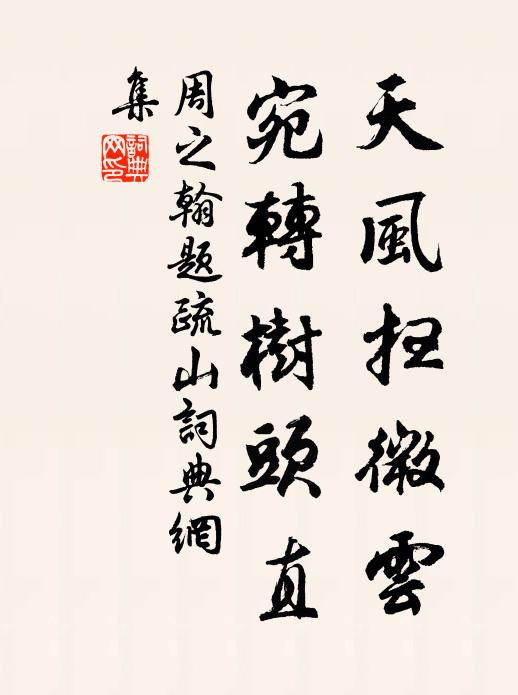 天風扫微雲
宛轉樹頭直
周之翰題疏山詞典網
集
詞典
网印